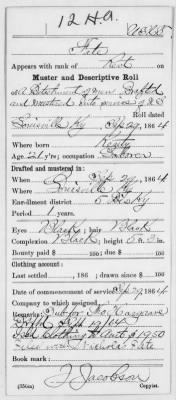 12 H.A.
Nate
Appears with rank of Rect on
Muster and Descriptive Roll
of a Detachment of men Drafted
and mustered into service of U S
Roll dated
Louisville Ky Sept 29, 1864
Where born Kenty
Age 21 y'rs; occupation Laborer
Drafted and mustered in:
When Sept 29, 1864
Where Louisville Ky
Enr'llment district 5 Dis Ky
Period 1 years.
Eyes Black; hair Black
Complexion Black; height ft. in.
Bounty paid $ 100; due $ 100
Clothing account:
Last settled , 186 ; drawn since $ 100
Date of commencement of service Sept 29, 1864
Company to which assigned
Remarks: Sub for
Clothing
Nicholas Pate
Book mark:
J Jacobson
(356a) Copyist.